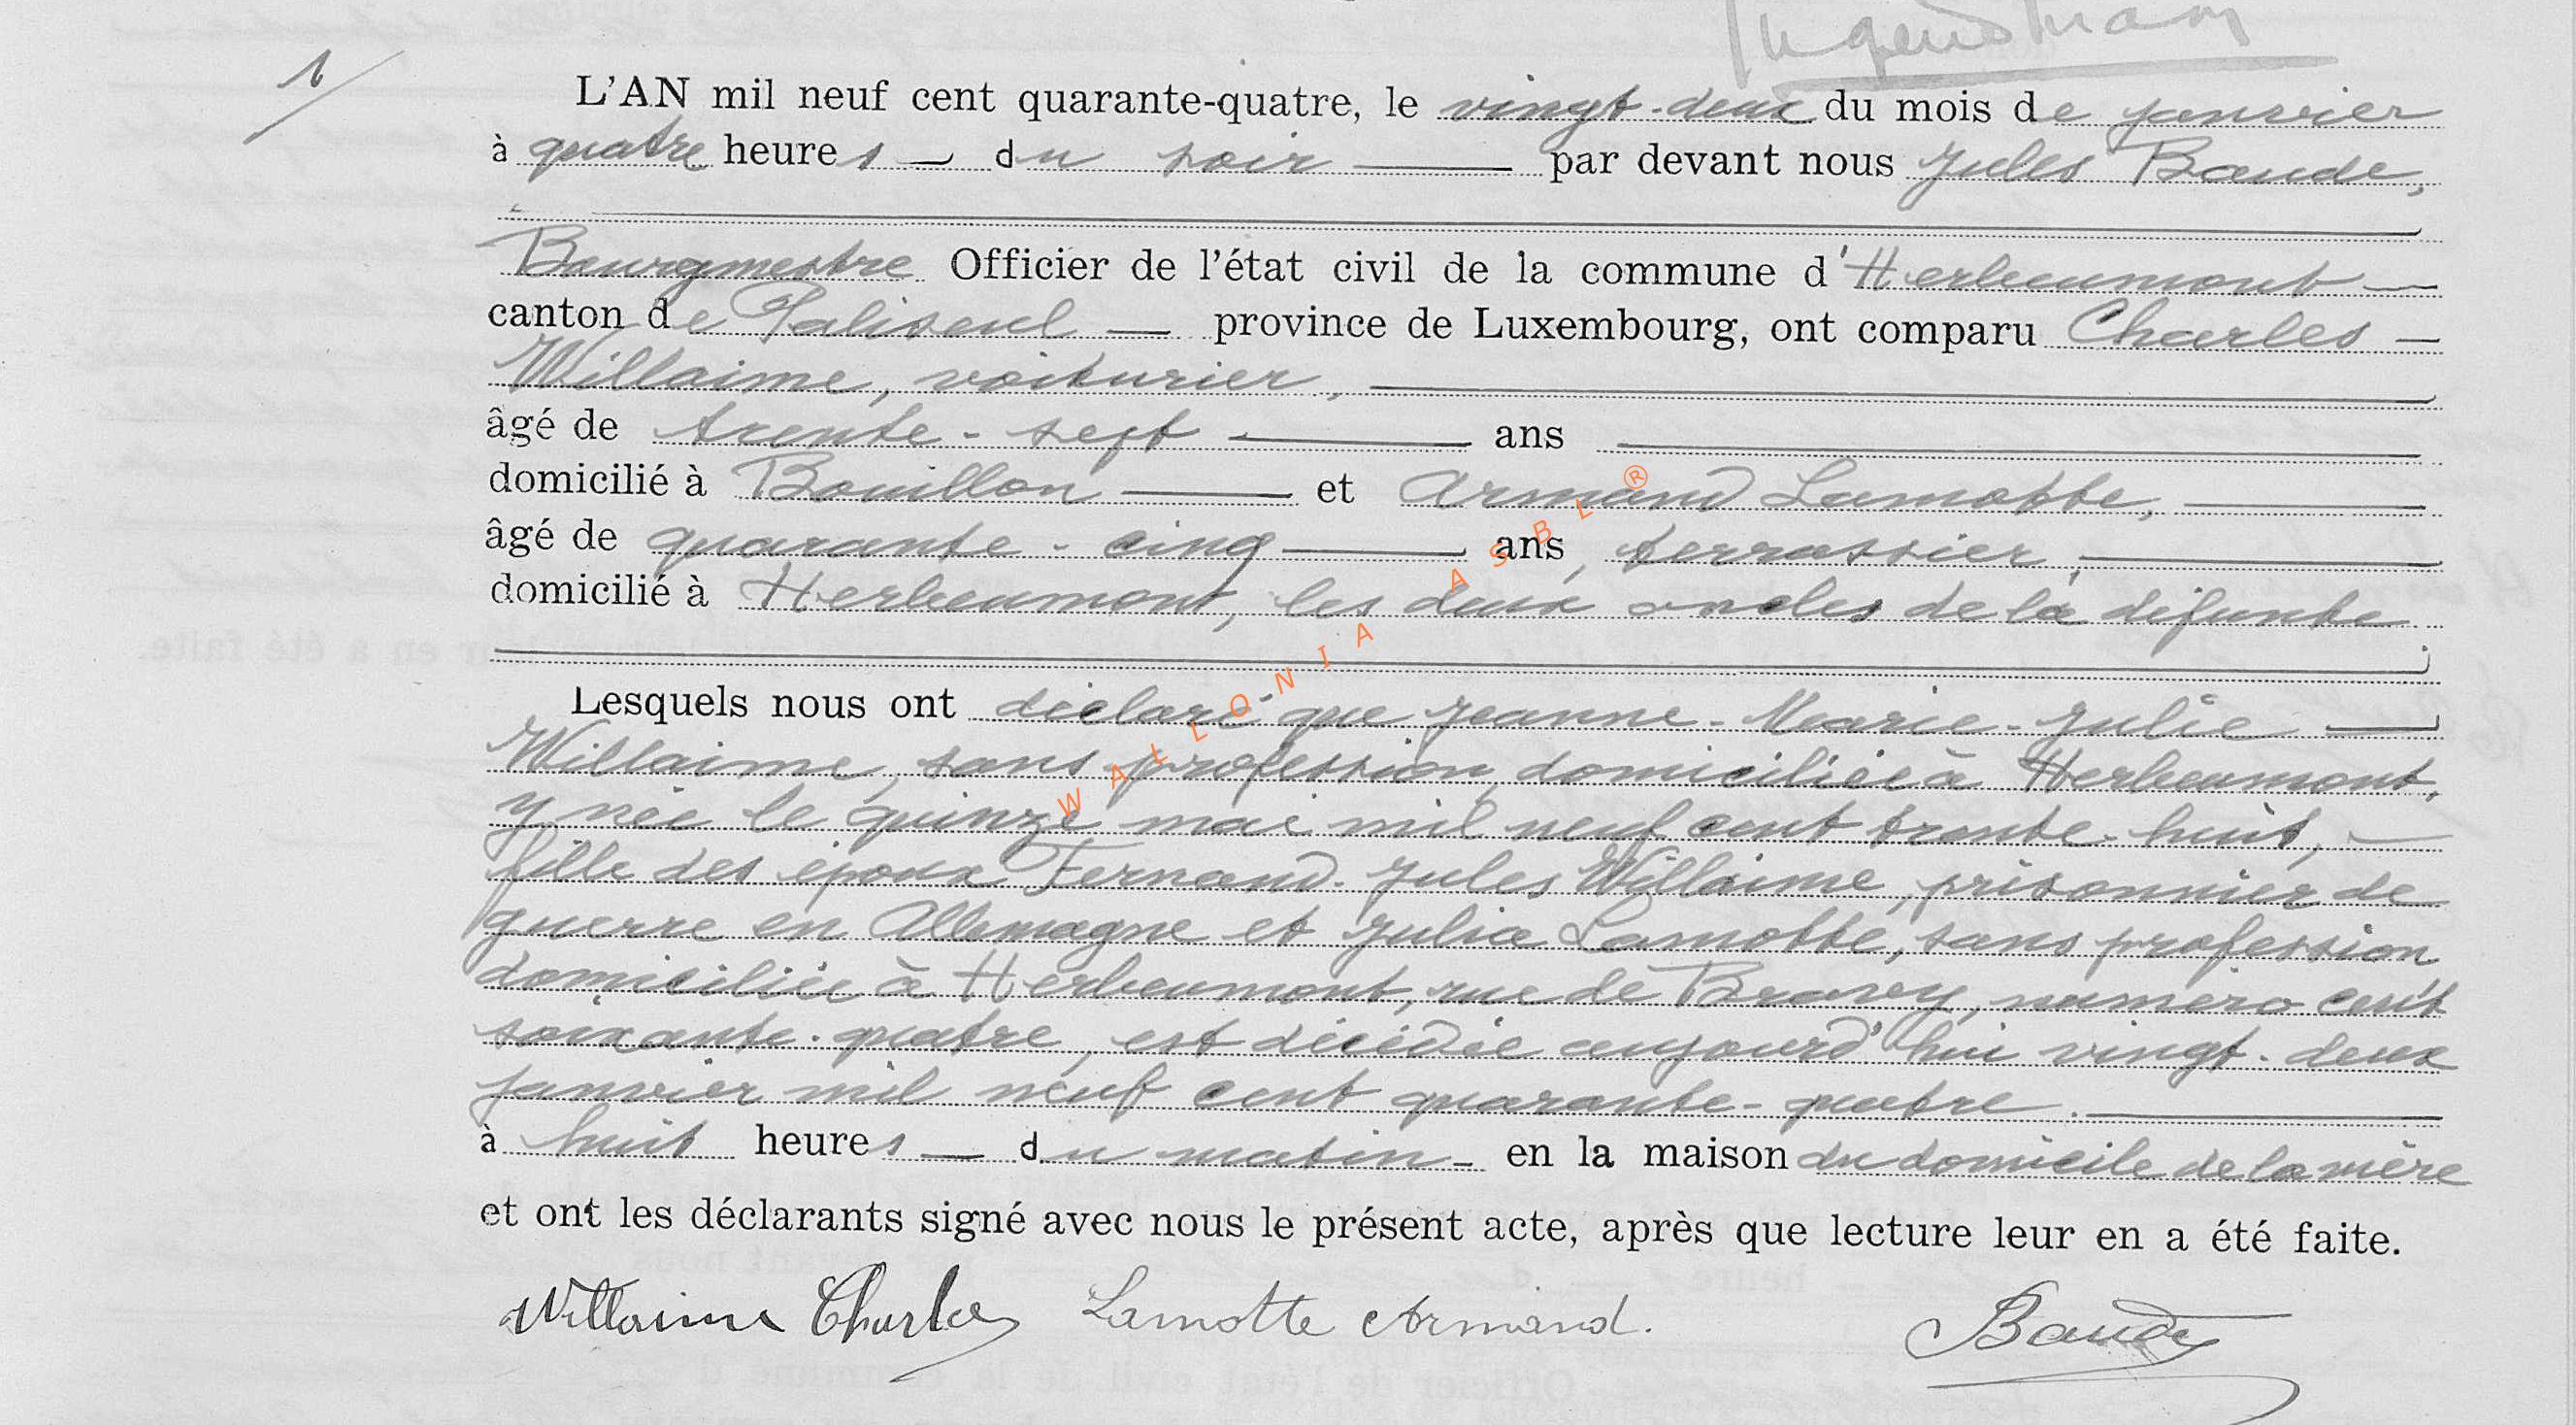 1/
L'AN mil neuf cent quarante-quatre, le vingt-deux du mois de janvier
à quatre heures du soir par devant nous Jules Baude,
Bourgmestre Officier de l'état civil de la commune d'Herbeumont
canton de Paliseul province de Luxembourg, ont comparu Charles
Willaime, voiturier,
âgé de trente-sept ans
domicilié à Bouillon et Armand Lamotte,
âgé de quarante-cinq ans, terrassier,
domicilié à Herbeumont, les deux oncles de la défunte
Lesquels nous ont déclaré que Jeanne-Marie-Julie
Willaime, sans profession, domiciliée à Herbeumont,
y née le quinze mai mil neuf cent trente-huit,
fille des époux Fernand-Jules Willaime, prisonnier de
guerre en Allemagne et Julia Lamotte, sans profession
domiciliée à Herbeumont, rue de Bravy, numéro cent
soixante-quatre, est décédée aujourd'hui vingt-deux
janvier mil neuf cent quarante-quatre.
à huit heures du matin en la maison du domicile de la mère
et ont les déclarants signé avec nous le présent acte, après que lecture leur en a été faite.
Willaime Charles Lamotte Armand. Baude
WALLONIA ASBL ®